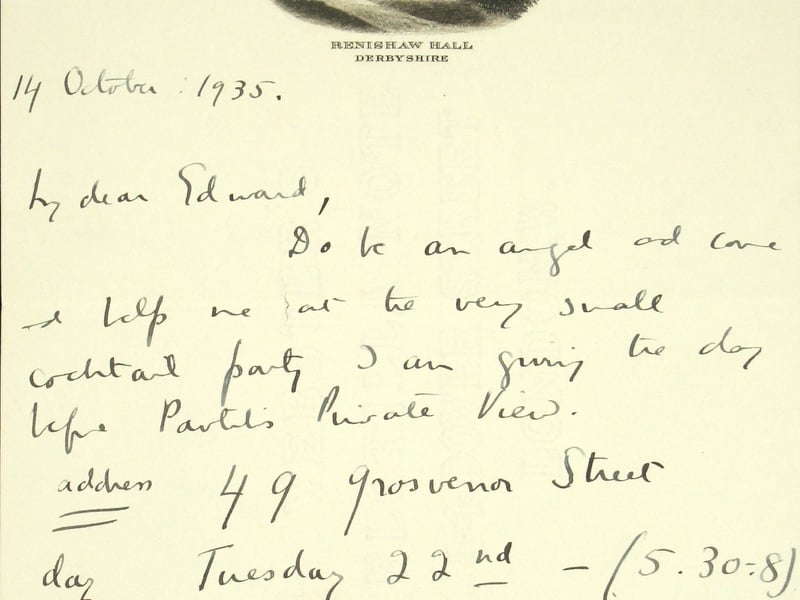 RENISHAW HALL
DERBYSHIRE
14 October 1935.
My dear Edward,
Do be an angel and come
and help me at the very small
cocktail party I am giving the day
before Pavlik's Private View.
address 49 Grosvenor Street
day Tuesday 22nd – (5.30-8)